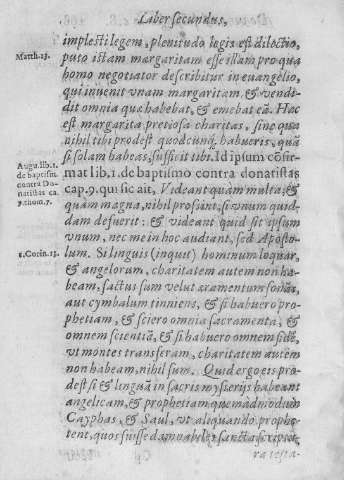 Liber secundus,
implesti legem, plenitudo legis est dilectio,
Matth. 13.
puto istam margaritam esse illam pro qua
homo negotiator describitur in euangelio,
qui inuenit vnam margaritam, & vendi-
dit omnia quæ habebat, & emebat eã. Hæc
est margarita pretiosa charitas, sine qua
nihil tibi prodest quodcunq; habueris, quã
si solam habeas, sufficit tibi. Id ipsum cõfir-
Aug. lib. 1.
de baptism.
contra Do-
natistas ca.
9. tom. 7.
mat lib. 1. de baptismo contra donatistas
cap. 9. qui sic ait, Videant quàm multa, &
quàm magna, nihil prosint, si vnum quod-
dam defuerit: & videant quid sit ipsum
vnum, nec me in hoc audiant, sed Aposto-
1. Corin. 13.
lum. Si linguis (inquit) hominum loquar,
& angelorum, charitatem autem non ha-
beam, factus sum velut æramentum sonãs,
aut cymbalum tinniens, & si habuero pro-
phetiam, & sciero omnia sacramenta, &
omnem scientiã, & si habuero omnem fidẽ,
vt montes transferam, charitatem autem
non habeam, nihil sum. Quid ergo eis pro-
dest si & linguã in sacris mysterijs habeant
angelicam, & prophetiam quemadmodum
Cayphas & Saul, vt aliquando prophe-
tent, quos fuisse damnabiles sancta scriptu-
ra testa-